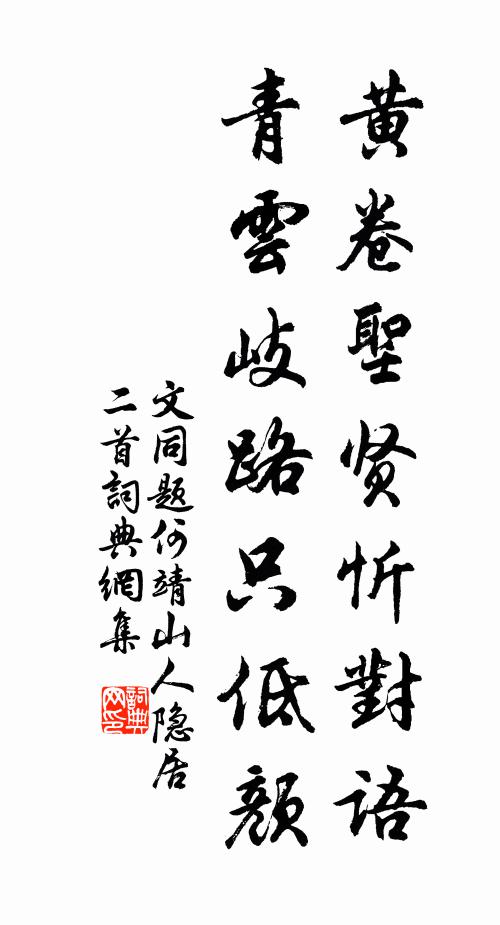 黄卷聖贤忻對語
青雲歧路只低颜
文同题何靖山人隐居
二首詞典網集
詞典
网印